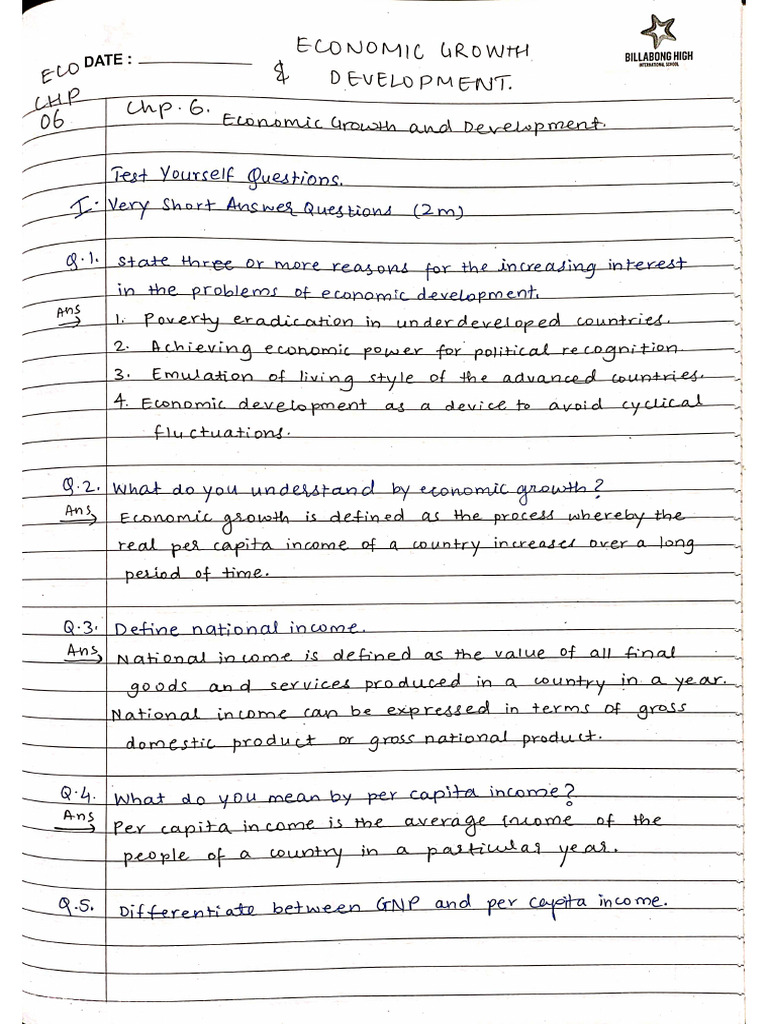 ECONOMIC GROWTH
& DEVELOPMENT.
DATE : ____________
BILLABONG HIGH
INTERNATIONAL SCHOOL
ECO
CHP
06
Chp. 6.
Economic Growth and Development.
Test Yourself Questions.
I. Very Short Answer Questions (2m)
Q.1. State three or more reasons for the increasing interest
in the problems of economic development.
Ans 1. Poverty eradication in underdeveloped countries.
2. Achieving economic power for political recognition.
3. Emulation of living style of the advanced countries.
4. Economic development as a device to avoid cyclical
fluctuations.
Q.2. What do you understand by economic growth?
Ans Economic growth is defined as the process whereby the
real per capita income of a country increases over a long
period of time.
Q.3. Define national income.
Ans National income is defined as the value of all final
goods and services produced in a country in a year.
National income can be expressed in terms of gross
domestic product or gross national product.
Q.4. What do you mean by per capita income?
Ans Per capita income is the average income of the
people of a country in a particular year.
Q.5. Differentiate between GNP and per capita income.